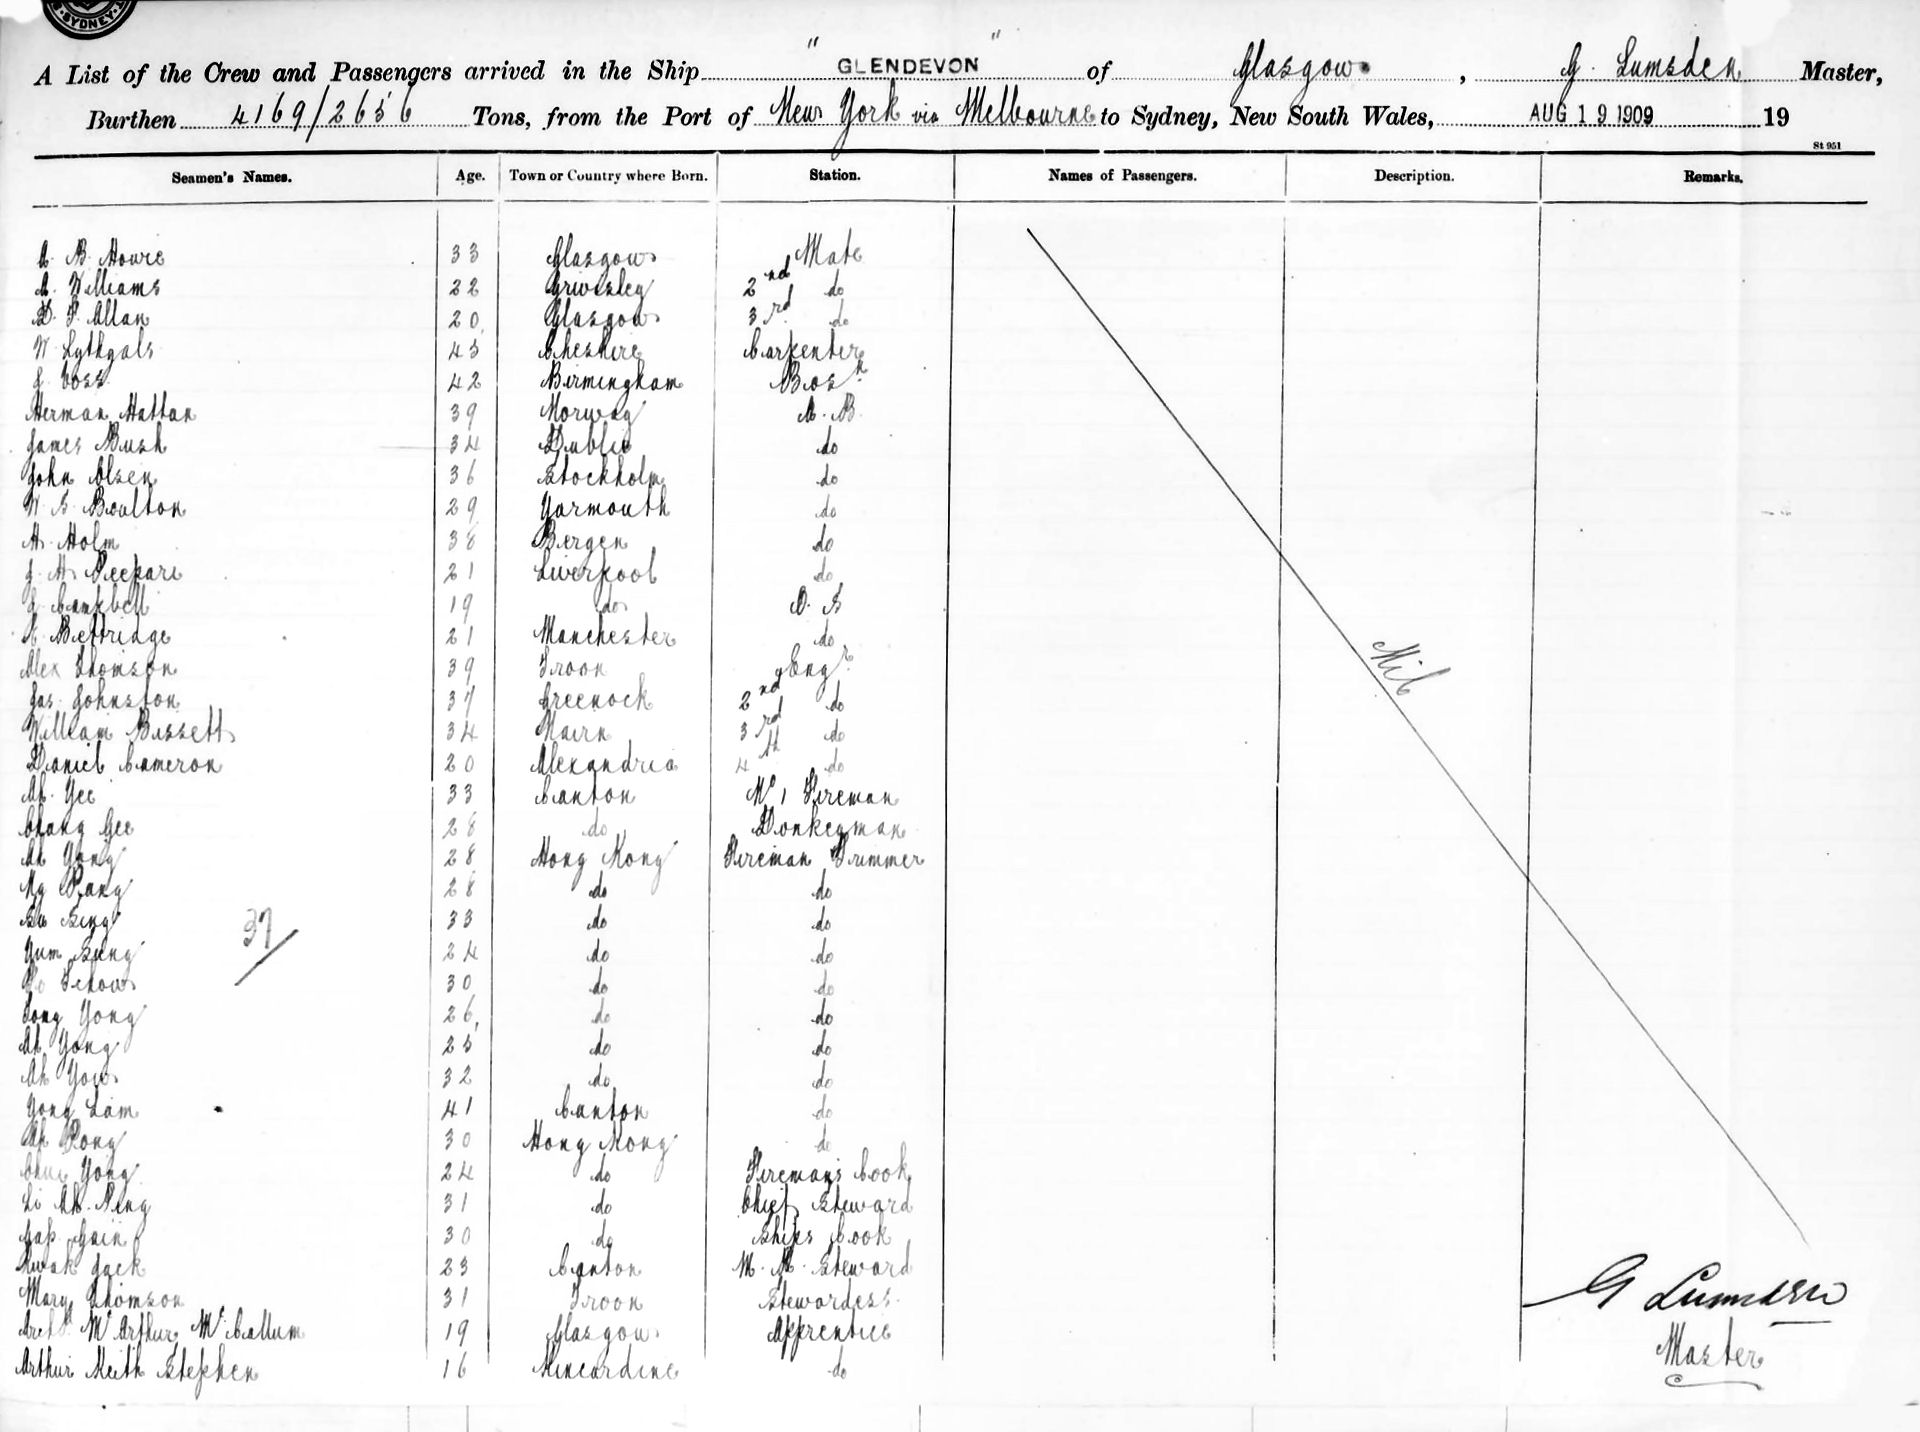 SYDNEY
A List of the Crew and Passengers arrived in the Ship "GLENDEVON" of Glasgow, G. Lumsden Master,
Burthen 4169/2656 Tons, from the Port of New York via Melbourne to Sydney, New South Wales, AUG 19 1909 19
St 951
Seamen's Names. Age. Town or Country where Born. Station. Names of Passengers. Description. Remarks.
A. B. Howie 33 Glasgow Mate
A. Williams 22 Grimsley 2nd do
D. P. Allan 20 Glasgow 3rd do
W. Lythgals 45 Cheshire Carpenter
J. Coss 42 Birmingham Bosn
Herman Hattan 39 Norway A. B.
James Bush 34 Dublin do
John Olsen 36 Stockholm do
W. S. Boulton 29 Yarmouth do
H. Holm 38 Bergen do
J. H. 21 Liverpool do
Campbell 19 do O. S
Bettridge 21 Manchester do
Alex Thomson 39 Troon Engr
Jas. Johnston 37 Greenock 2nd do
William Bissett 34 Nairn 3rd do
Daniel Cameron 20 Alexandria 4th do
Ah Yee 33 Canton No 1 Fireman
Chang Gee 28 do Donkeyman
Ah Yong 28 Hong Kong Fireman Trimmer
Ng Pang 28 do do
Su Sing 33 do do
37/
Yum Sung 24 do do
30 do do
Tong Yong 26 do do
Ah Yong 25 do do
Ah Yow 32 do do
Yong Lam 41 Canton do
Ah Pong 30 Hong Kong do
Yong 24 do Fireman's Cook
Li Ah Ping 31 do Chief Steward
30 do Ships Cook
Kwok Jack 23 Canton M. R. Steward
Mary Thomson 31 Troon Stewardess
Archd McArthur McCallum 19 Glasgow Apprentice
Arthur Keith Stephen 16 Kincardine do
Nil
G Lumsden
Master